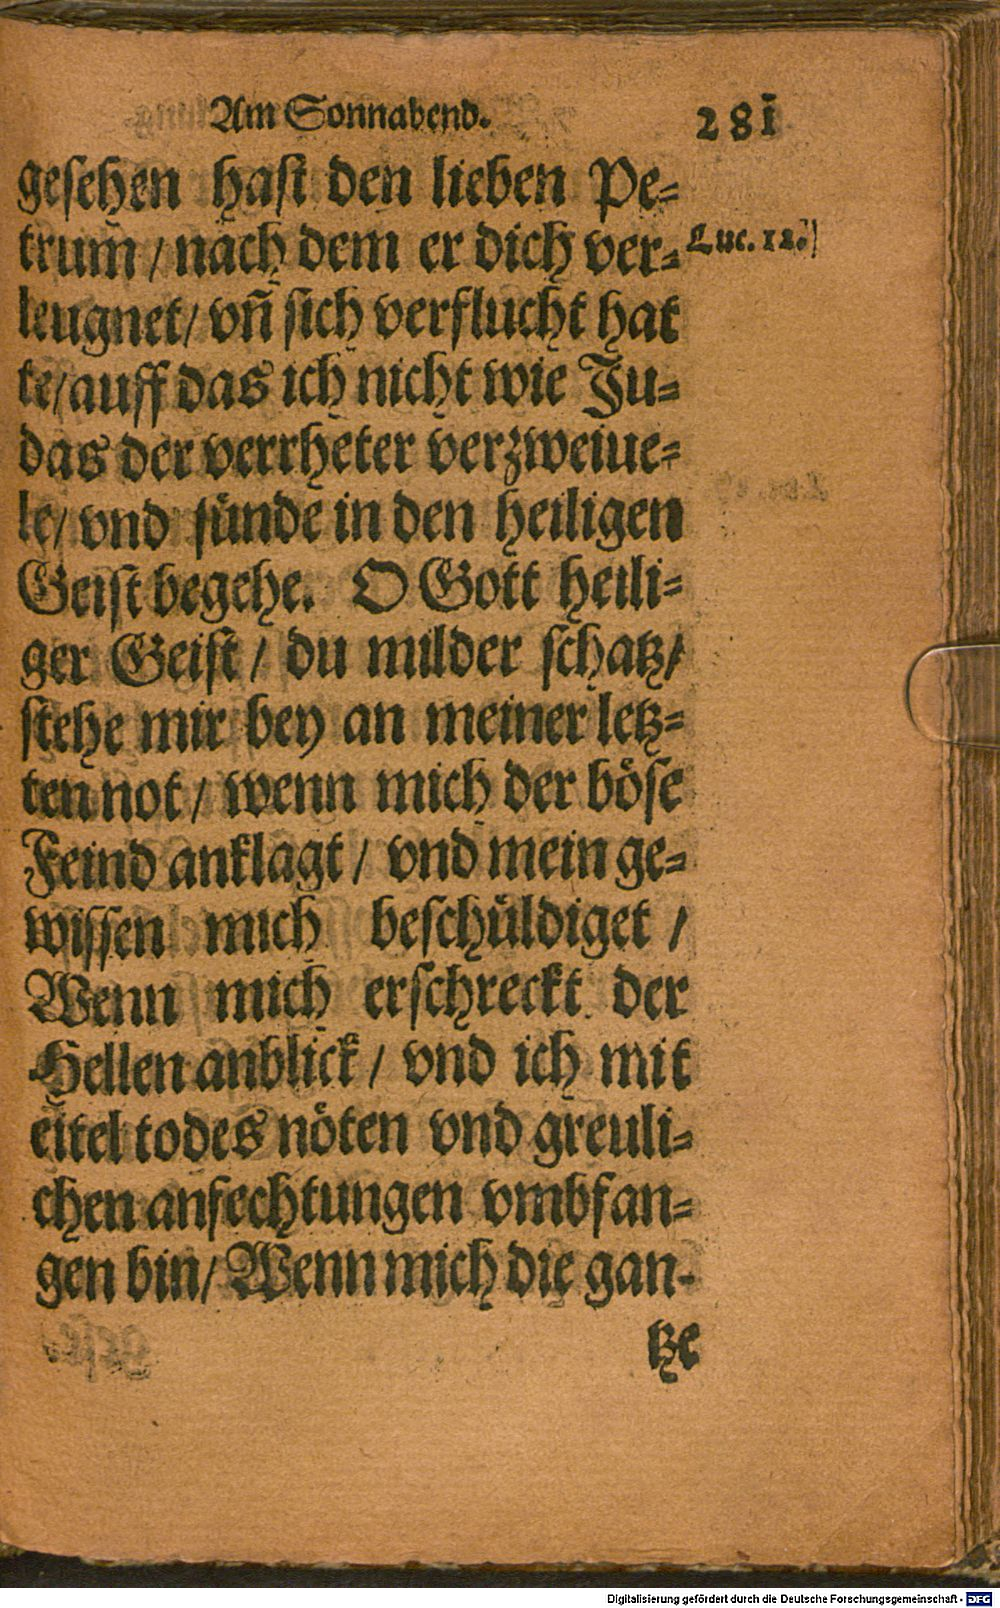 Am Sonnabend. 281
gesehen hast den lieben Pe-
trum / nach dem er dich ver-
Luc. 22.
leugnet / vñ sich verflucht hat
te / auff das ich nicht wie Ju-
das der verrheter verzweiue-
le / vnd sünde in den heiligen
Geist begehe. O Gott heili-
ger Geist / du milder schatz /
stehe mir bey an meiner letz-
ten not / wenn mich der böse
Feind anklagt / vnd mein ge-
wissen mich beschüldiget /
Wenn mich erschreckt der
Hellen anblick / vnd ich mit
eitel todes nöten vnd greuli-
chen anfechtungen vmbfan-
gen bin / Wenn mich die gan-
tze
Digitalisierung gefördert durch die Deutsche Forschungsgemeinschaft - DFG